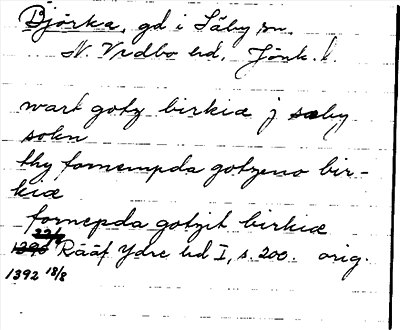 Björka, gd i Säby sn.
N. Vedbo hd, Jönk. l.
wart gotz birkiæ j sæby
sokn
thy fornempda gotzeno bir-
kiæ
fornepda gotzit birkiæ
Rääf Ydre hd I, s. 200. orig.
1392 18/8